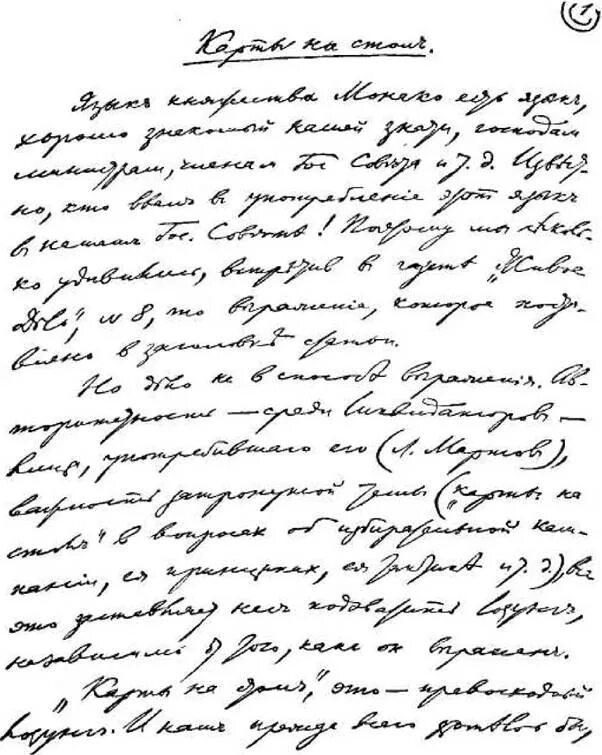 1
Карты на столъ.
Языкъ княжества Монако есть языкъ,
хорошо знакомый нашей знати, господам
министрам, членам Гос. Совѣта и т. д. Извѣст-
но, кто ввелъ в употребленіе этот языкъ
в нашем Гос. Совѣтѣ! Поэтому мы нѣсколь-
ко удивились, встрѣтив в газетѣ „Живое
Дѣло“, № 8, то выраженіе, которое постав-
влено в заголовкѣ статьи.
Но дѣло не в способѣ выраженія. Ав-
торитетность — среди ликвидаторовъ —
лица, употребившаго его (Л. Мартовъ),
важность затронутой темы („карты на
столъ“ в вопросах об избирательной кам-
паніи, ея принципах, ея тактикѣ и т. д.), все
это заставляет нас подхватить лозунгъ,
независимо от того, какъ он выраженъ.
„Карты на столъ“, это — превосходный
лозунгъ. И намъ прежде всего хотѣлось бы,